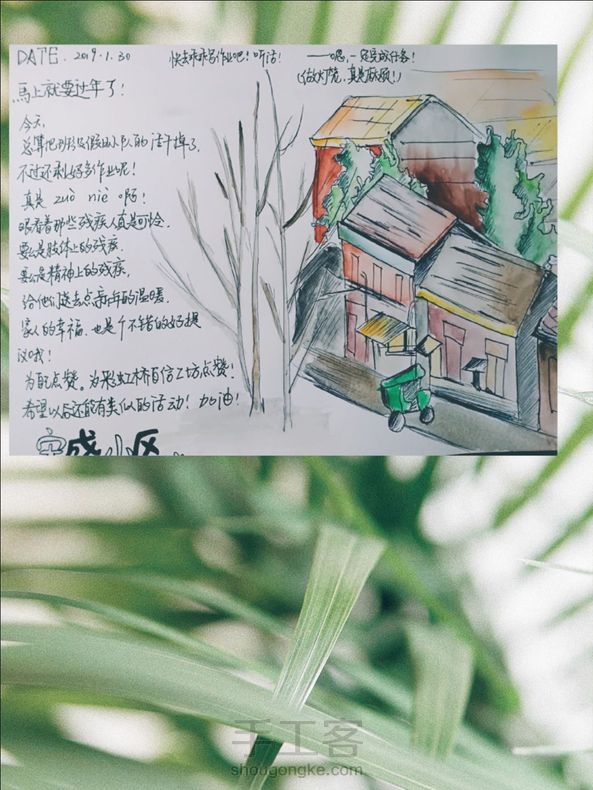 DATE. 2019.1.30
快去乖乖写作业吧！听话！
——嗯，一定完成任务！
(做灯笼，真是麻烦！)
馬上就要过年了！
今天，
总算把班级假日小队的活干掉了，
不过还剩好多作业呢！
真是 zuò niè 啊！
眼看着那些残疾人真是可怜，
要么是肢体上的残疾，
要么是精神上的残疾，
给他们送去点新年的温暖，
家人的幸福，也是个不错的好提
议哦！
点赞。为彩虹桥百信工坊点赞！
希望以后还能有类似的活动！加油！
小区
手工客
shougongke.com